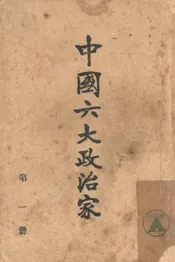 中國六大政治家
第一册